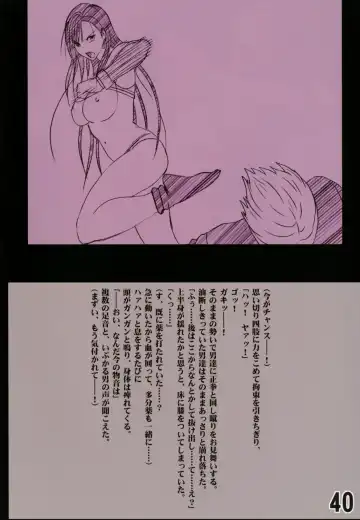 （今がチャンス――！）
思い切り四肢に力をこめて拘束を引きちぎり、
「ハッ！　ヤァッ！」
ゴッ！
ガキッ――！
そのままの勢いで男達に正拳と回し蹴りをお見舞いする。
油断しきっていた男達はそのままあっさりと崩れ落ちた。
「ふぅ……後はここからなんとかして抜け出し……て……え？」
上半身が揺れたかと思うと、床に膝をついてしまっていた。
「くっ……」
（す、既に薬を打たれていた……？
急に動いたから血が回って、多分薬も一緒に……）
ハァハァと息をするたびに
頭がガンガンと鳴り、身体は痺れてくる。
「――おい、なんだ今の物音は」
複数の足音と、いぶかる男の声が聞こえた。
（まずい、もう気付かれて――！）
40